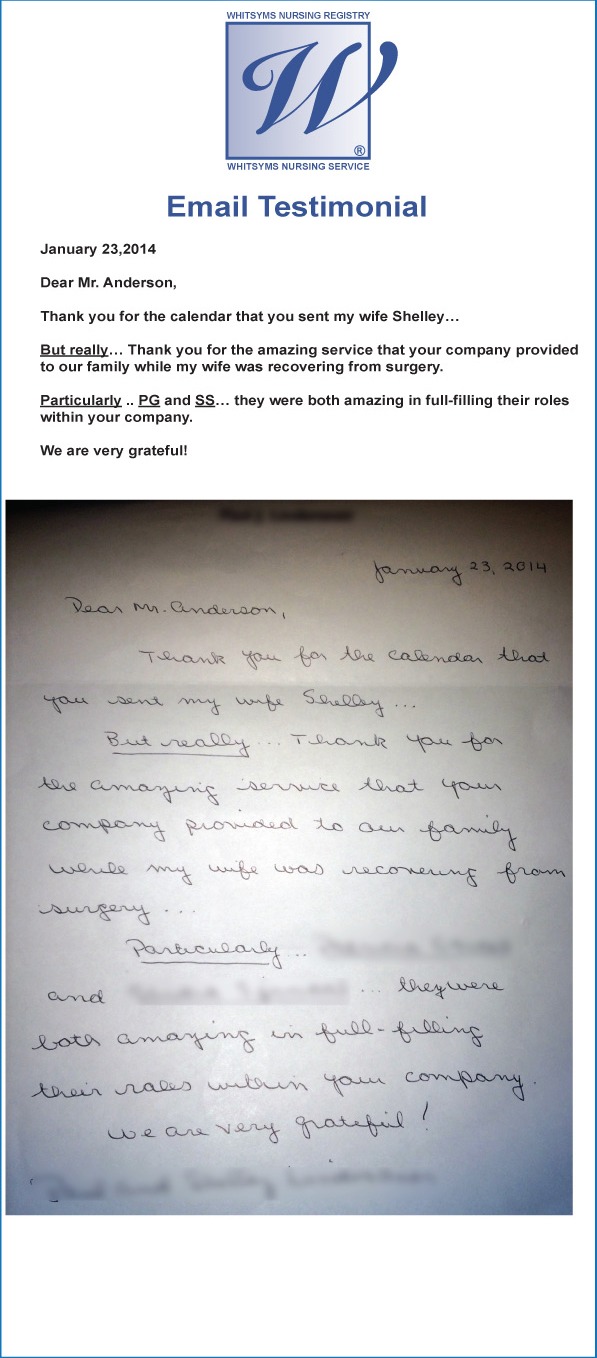 WHITSYMS NURSING REGISTRY
W
®
WHITSYMS NURSING SERVICE
Email Testimonial
January 23,2014
Dear Mr. Anderson,
Thank you for the calendar that you sent my wife Shelley…
But really… Thank you for the amazing service that your company provided
to our family while my wife was recovering from surgery.
Particularly .. PG and SS… they were both amazing in full-filling their roles
within your company.
We are very grateful!
January 23, 2014
Dear Mr. Anderson,
Thank you for the calendar that
you sent my wife Shelley ...
But really ... Thank you for
the amazing service that your
company provided to our family
while my wife was recovering from
surgery ...
Particularly ...
and ... they were
both amazing in full-filling
their roles within your company.
We are very grateful!